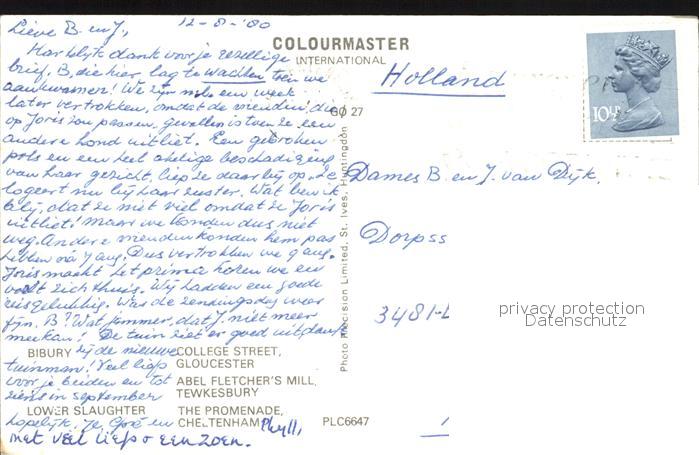 12-8-'80
Lieve B. en J.,
Hartelijk dank voor je gezellige
brief, B, die hier lag te wachten toen we
aankwamen! We zijn een week
later vertrokken, omdat de vriendin, die
op Joris zou passen, gevallen is toen ze een
andere hond uitliet. Een gebroken
pols en een heel akelige beschadiging
van haar gezicht, liep ze daarbij op. Ze
logeert nu bij haar zuster. Wat ben ik
blij, dat ze niet viel omdat ze Joris
uitliet! Maar we konden dus niet
weg. Andere vrienden konden hem pas
hebben ná 7 aug. Dus vertrokken we 9 aug.
Joris maakt het prima horen we en
voelt zich thuis. Wij hadden een goede
reis gelukkig. Was de zendingsdag weer
fijn, B? Wat jammer, dat J. niet meer
meekan! De tuin ziet er goed uit, dank
zij de nieuwe
tuinman! Veel liefs
voor je beiden en tot
ziens in september
hopelijk. Je Goré en Phyll,
met veel liefs & een zoen.
COLOURMASTER
INTERNATIONAL
GØ 27
Holland
10½P
Dames B. en J. van Dijk,
Dorpss
3481-L
privacy protection
Datenschutz
Photo Precision Limited, St. Ives, Huntingdon
BIBURY
COLLEGE STREET,
GLOUCESTER
ABEL FLETCHER'S MILL,
TEWKESBURY
LOWER SLAUGHTER
THE PROMENADE,
CHELTENHAM
PLC6647